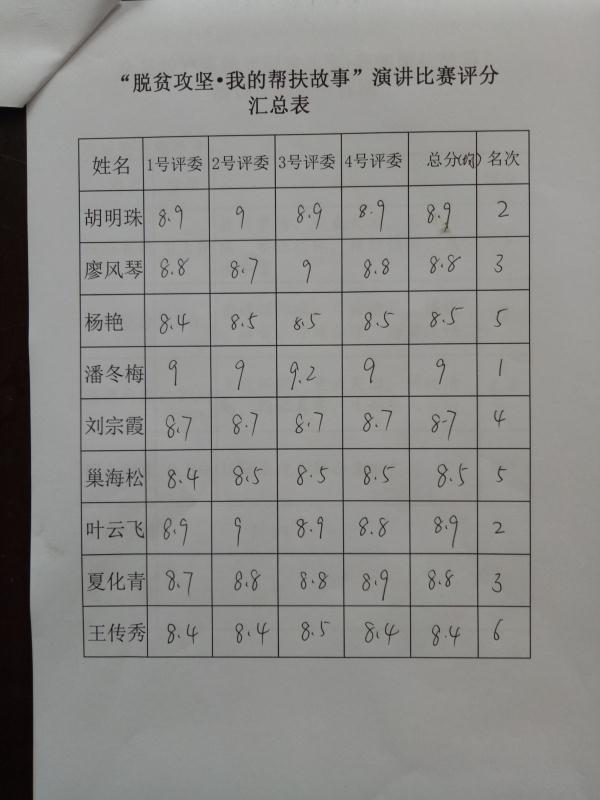 “脱贫攻坚•我的帮扶故事”演讲比赛评分
汇总表
姓名 1号评委 2号评委 3号评委 4号评委 总分(均) 名次
胡明珠 8.9 9 8.9 8.9 8.9 2
廖风琴 8.8 8.7 9 8.8 8.8 3
杨艳 8.4 8.5 8.5 8.5 8.5 5
潘冬梅 9 9 9.2 9 9 1
刘宗霞 8.7 8.7 8.7 8.7 8.7 4
巢海松 8.4 8.5 8.5 8.5 8.5 5
叶云飞 8.9 9 8.9 8.8 8.9 2
夏化青 8.7 8.8 8.8 8.9 8.8 3
王传秀 8.4 8.4 8.5 8.4 8.4 6